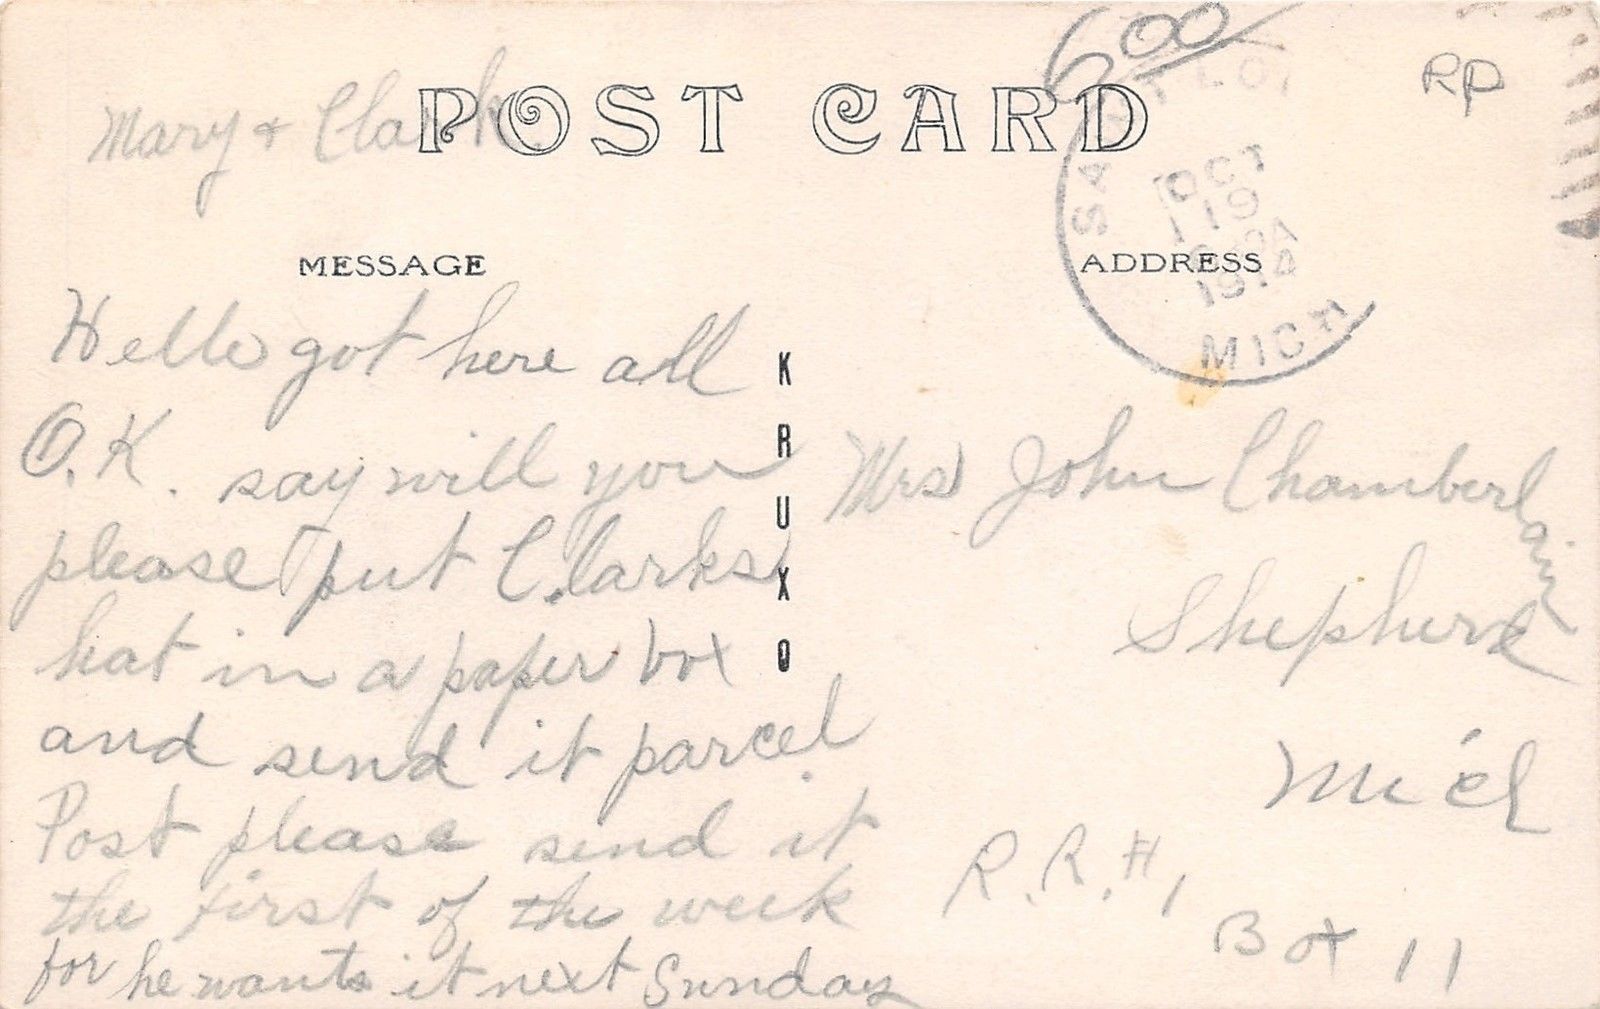 6.00
RP
Mary & Clark
POST CARD
SAINT LO
OCT
19
1914
MICH
MESSAGE
ADDRESS
Hello got here all
O.K. say will you
please put Clarks
hat in a paper box
and send it parcel
Post please send it
the first of the week
for he wants it next Sunday
KRUXO
Mrs John Chamberlain
Shepherd
Mich
R.R.#1
Box 11